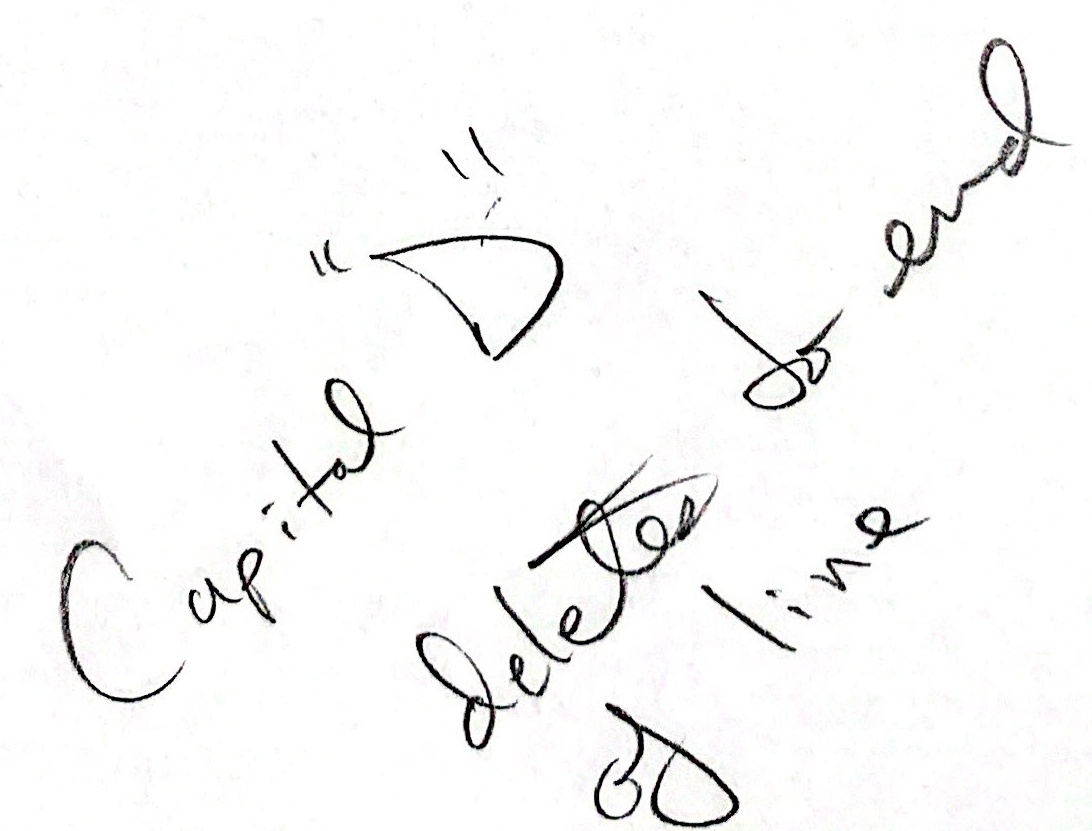 Capital "D"
deletes to end
of line